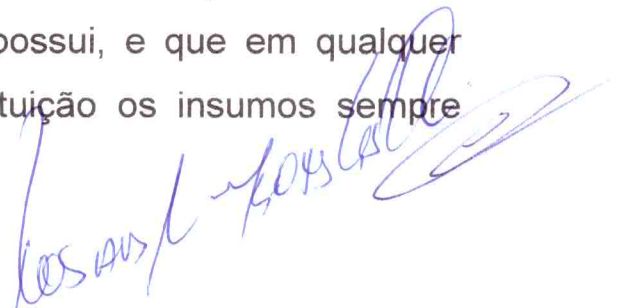 possui, e que em qualquer
tuição os insumos sempre